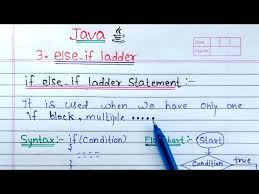 Java
3. else-if ladder
if else-if ladder Statement :-
It is used when we have only one
if block, multiple .....
Syntax:- if (Condition) Flowchart:- Start
{
----
} Condition true